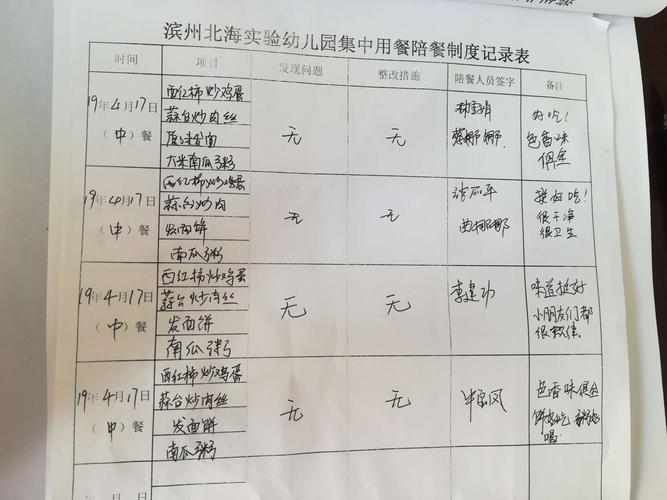 滨州北海实验幼儿园集中用餐陪餐制度记录表
时间 项目 发现问题 整改措施 陪餐人员签字 备注
19年4月17日
（中）餐
西红柿炒鸡蛋
蒜台炒肉丝
大米南瓜粥
无
无
好吃！
色香味
俱全
19年4月17日
（中）餐
西红柿炒鸡蛋
蒜台炒肉
发面饼
南瓜粥
无
无
挺好吃！
很干净
很卫生
19年4月17日
（中）餐
西红柿炒鸡蛋
蒜台炒肉丝
发面饼
南瓜粥
无
无
李建功
味道挺好
小朋友们都
很
19年4月17日
（中）餐
西红柿炒鸡蛋
蒜台炒肉丝
发面饼
南瓜粥
无
无
色香味俱全
饼好吃
喝
年 月 日